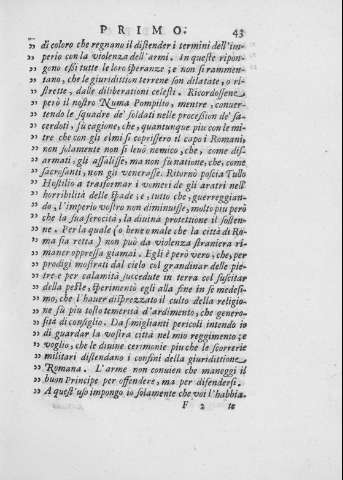 PRIMO. 43
” di coloro che regnano il distender i termini dell'im-
” perio con la violenza dell'armi. In queste ripon-
” gono essi tutte le loro speranze; e non si rammen-
” tano, che le giuridittion terrene son dilatate, o ri-
” strette, dalle diliberationi celesti. Ricordossene
” però il nostro Numa Pompilio, mentre, conuer-
” tendo le squadre de' soldati nelle procession de' sa-
” cerdoti, fù cagione, che, quantunque piu con le mi-
” tre che con gli elmi si coprissero il capo i Romani,
” non solamente non si leuò nemico, che, come dis-
” armati, gli assalisse, ma non fù natione, che, come
” sacrosanti, non gli venerasse. Ritornò poscia Tullo
” Hostilio a trasformar i vomeri de gli aratri nell'
” horribilità delle spade; e, tutto che, guerreggian-
” do, l'Imperio vostro non diminuisse, molto piu però
” che la sua ferocità, la diuina protettione il sosten-
” ne. Per la quale (o bene o male che la città di Ro-
” ma sia retta) non può da violenza straniera ri-
” maner oppressa giamai. Egli è però vero, che, per
” prodigi mostrati dal cielo col grandinar delle pie-
” tre e per calamità succedute in terra col suscitar
” della peste, sperimentò egli alla fine in se medesi-
” mo, che l'hauer disprezzato il culto della religio-
” ne fù piu tosto temerità d'ardimento, che genero-
” sità di consiglio. Da simiglianti pericoli intendo io
” di guardar la vostra città nel mio reggimento; e
” voglio, che le diuine cerimonie piu che le scorrerie
” militari distendano i confini della giuridittione
” Romana. L'arme non conuien che maneggi il
” buon Principe per offendere, ma per difendersi.
” A quest'uso impongo io solamente che voi l'habbia-
F 2 te